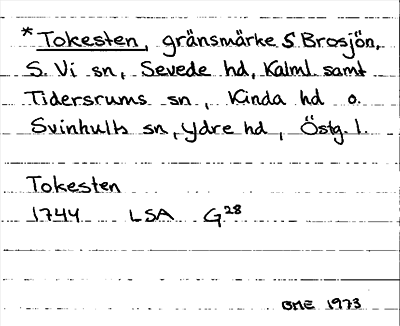 *Tokesten, gränsmärke S. Brosjön,
S. Vi sn, Sevede hd, Kalml. samt
Tidersrums sn, Kinda hd o.
Svinhults sn, Ydre hd, Östg. l.
Tokesten
1744 LSA G28
OME 1973